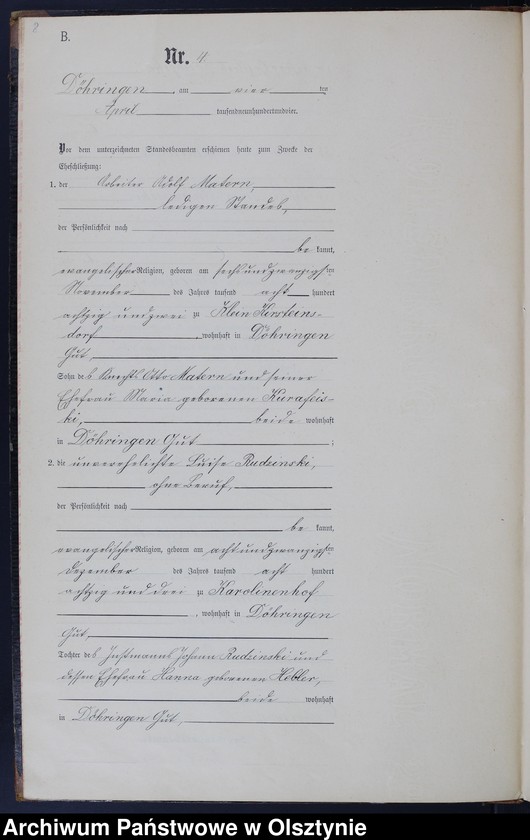 2
B.
Nr. 4
Döhringen, am vier ten
April tausendneunhundertundvier.
Vor dem unterzeichneten Standesbeamten erschienen heute zum Zwecke der
Eheschließung:
1. der Arbeiter Adolf Matern,
ledigen Standes,
der Persönlichkeit nach
be kannt,
evangelischer Religion, geboren am sechsundzwanzigsten
November des Jahres tausend acht hundert
achtzig und zwei zu Klein
dorf, wohnhaft in Döhringen
Gut,
Sohn des Knechts Otto Matern und seiner
Ehefrau Maria geborenen
ki, beide wohnhaft
in Döhringen Gut;
2. die unverehelichte Luise Rudzinski,
ohne Beruf,
der Persönlichkeit nach
be kannt,
evangelischer Religion, geboren am achtundzwanzigsten
Dezember des Jahres tausend acht hundert
achtzig und drei zu Karolinenhof
, wohnhaft in Döhringen
Gut,
Tochter des Instmanns Johann Rudzinski und
dessen Ehefrau Hanna geborenen Hebler,
beide wohnhaft
in Döhringen Gut,
Archiwum Państwowe w Olsztynie